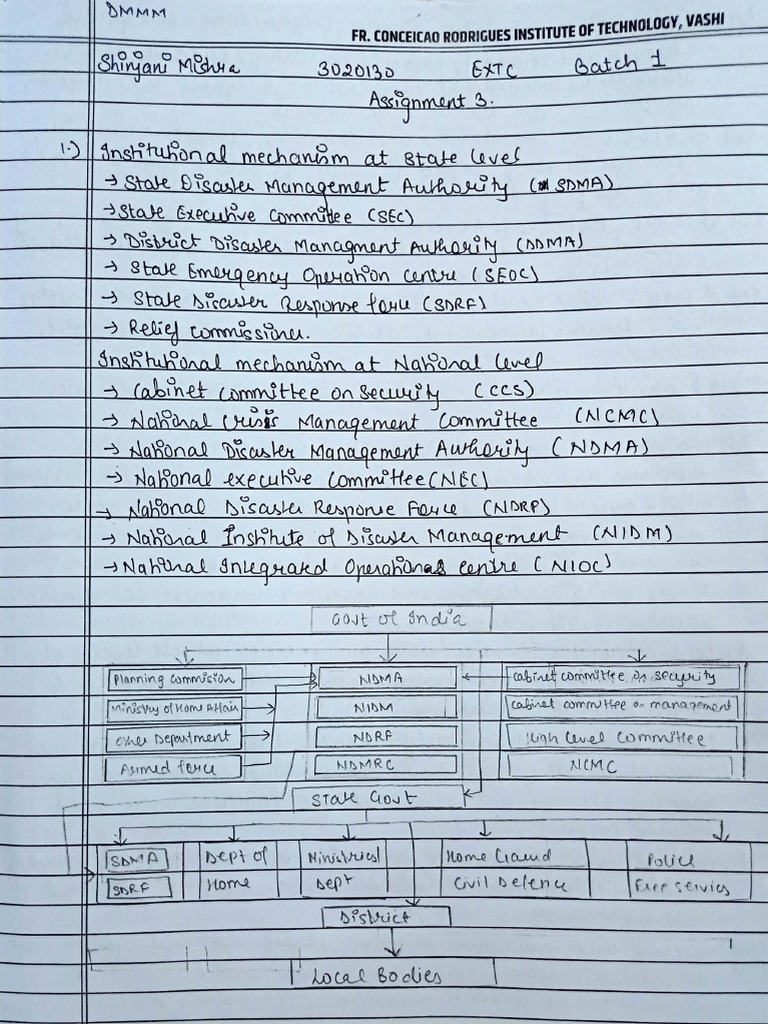 DMMM
FR. CONCEICAO RODRIGUES INSTITUTE OF TECHNOLOGY, VASHI
Shinjani Mishra 3020130 EXTC Batch 1
Assignment 3.
1.) Institutional mechanism at state level
→ State Disaster Management Authority (SDMA)
→ State Executive Committee (SEC)
→ District Disaster Managment Authority (DDMA)
→ State Emergency Operation Centre (SEOC)
→ State Disaster Response force (SDRF)
→ Relief commissioner.
Institutional mechanism at National level
→ Cabinet Committee on Security (CCS)
→ National Crisis Management Committee (NCMC)
→ National Disaster Management Authority (NDMA)
→ National executive Committee (NEC)
→ National Disaster Response Force (NDRF)
→ National Institute of Disaster Management (NIDM)
→ National Integrated Operational centre (NIOC)
Govt of India
Planning commision NDMA Cabinet committee on security
Ministry of Home Affair NIDM Cabinet committee on management
Other Department NDRF High Level Committee
Armed force NDMRC NCMC
State Govt
SDMA Dept of Ministries Home Guard Police
SDRF Home Dept Civil Defence Fire Servics
District
Local Bodies